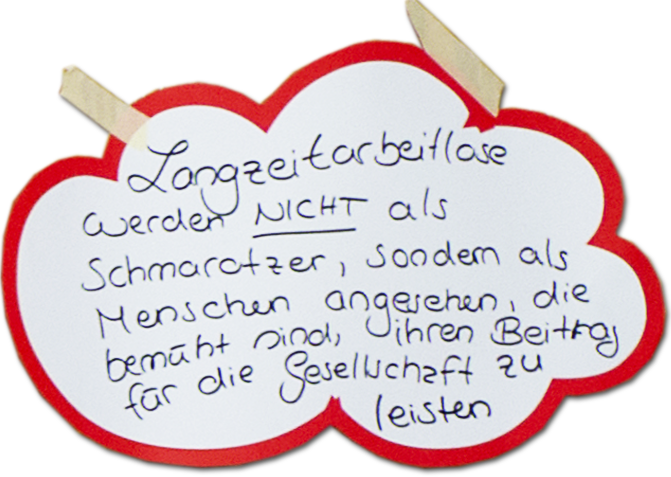 Langzeitarbeitlose
werden NICHT als
Schmarotzer, sondern als
Menschen angesehen, die
bemüht sind, ihren Beitrag
für die Gesellschaft zu
leisten